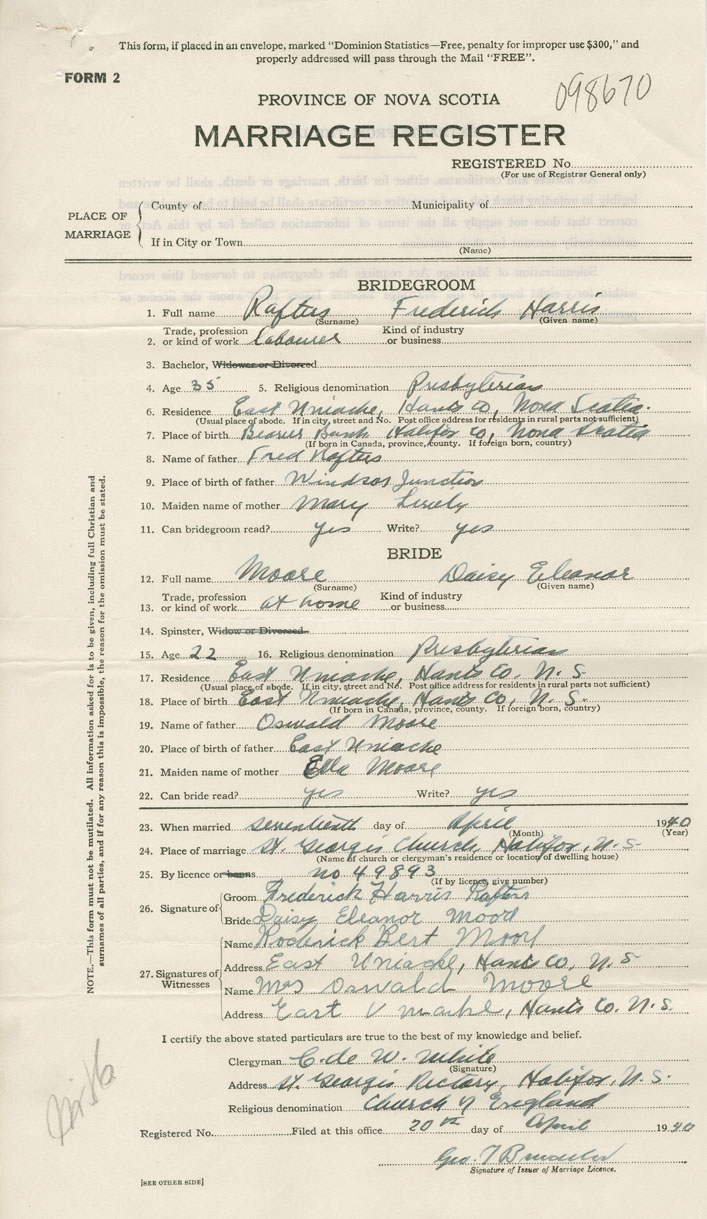 This form, if placed in an envelope, marked "Dominion Statistics—Free, penalty for improper use $300," and
properly addressed will pass through the Mail "FREE".
FORM 2
098670
PROVINCE OF NOVA SCOTIA
MARRIAGE REGISTER
REGISTERED No.
(For use of Registrar General only)
PLACE OF MARRIAGE
County of Municipality of
If in City or Town
(Name)
BRIDEGROOM
1. Full name Raftus Frederick Harris
(Surname) (Given name)
2. Trade, profession or kind of work Labourer Kind of industry or business
3. Bachelor, Widower or Divorced
4. Age 35 5. Religious denomination Presbyterian
6. Residence East Uniacke, Hants Co, Nova Scotia.
(Usual place of abode. If in city, street and No. Post office address for residents in rural parts not sufficient)
7. Place of birth Beaver Bank Halifax Co, Nova Scotia
(If born in Canada, province, county. If foreign born, country)
8. Name of father Fred Raftus
9. Place of birth of father Windsor Junction
10. Maiden name of mother Mary
11. Can bridegroom read? yes Write? yes
BRIDE
12. Full name Moore Daisy Eleanor
(Surname) (Given name)
13. Trade, profession or kind of work at home Kind of industry or business
14. Spinster, Widow or Divorced.
15. Age 22 16. Religious denomination Presbyterian
17. Residence East Uniacke, Hants Co. N.S
(Usual place of abode. If in city, street and No. Post office address for residents in rural parts not sufficient)
18. Place of birth East Uniacke, Hants Co, N.S.
(If born in Canada, province, county. If foreign born, country)
19. Name of father Oswald Moore
20. Place of birth of father East Uniacke
21. Maiden name of mother Ella Moore
22. Can bride read? yes Write? yes
23. When married day of April 1940
(Month) (Year)
24. Place of marriage St. George's Church, Halifax, N.S
(Name of church or clergyman's residence or location of dwelling house)
25. By licence or banns no 49893
(If by licence, give number)
26. Signature of
Groom Frederick Harris Raftus
Bride Daisy Eleanor Moore
27. Signatures of Witnesses
Name Roderick Bert Moore
Address East Uniacke, Hants Co, N.S
Name Mrs Oswald Moore
Address East Uniacke, Hants Co. N.S.
I certify the above stated particulars are true to the best of my knowledge and belief.
Clergyman C. de W. White
(Signature)
Address St. George's Rectory, Halifax, N.S.
Religious denomination Church of England
Registered No. Filed at this office 20th day of April 1940
Geo. T
Signature of Issuer of Marriage Licence.
[SEE OTHER SIDE]
NOTE.—This form must not be mutilated. All information asked for is to be given, including full Christian and
surnames of all parties, and if for any reason this is impossible, the reason for the omission must be stated.